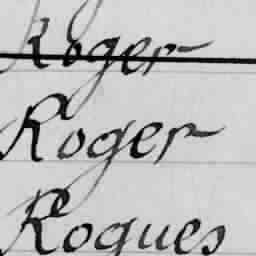 Roger
Roger
Rogues